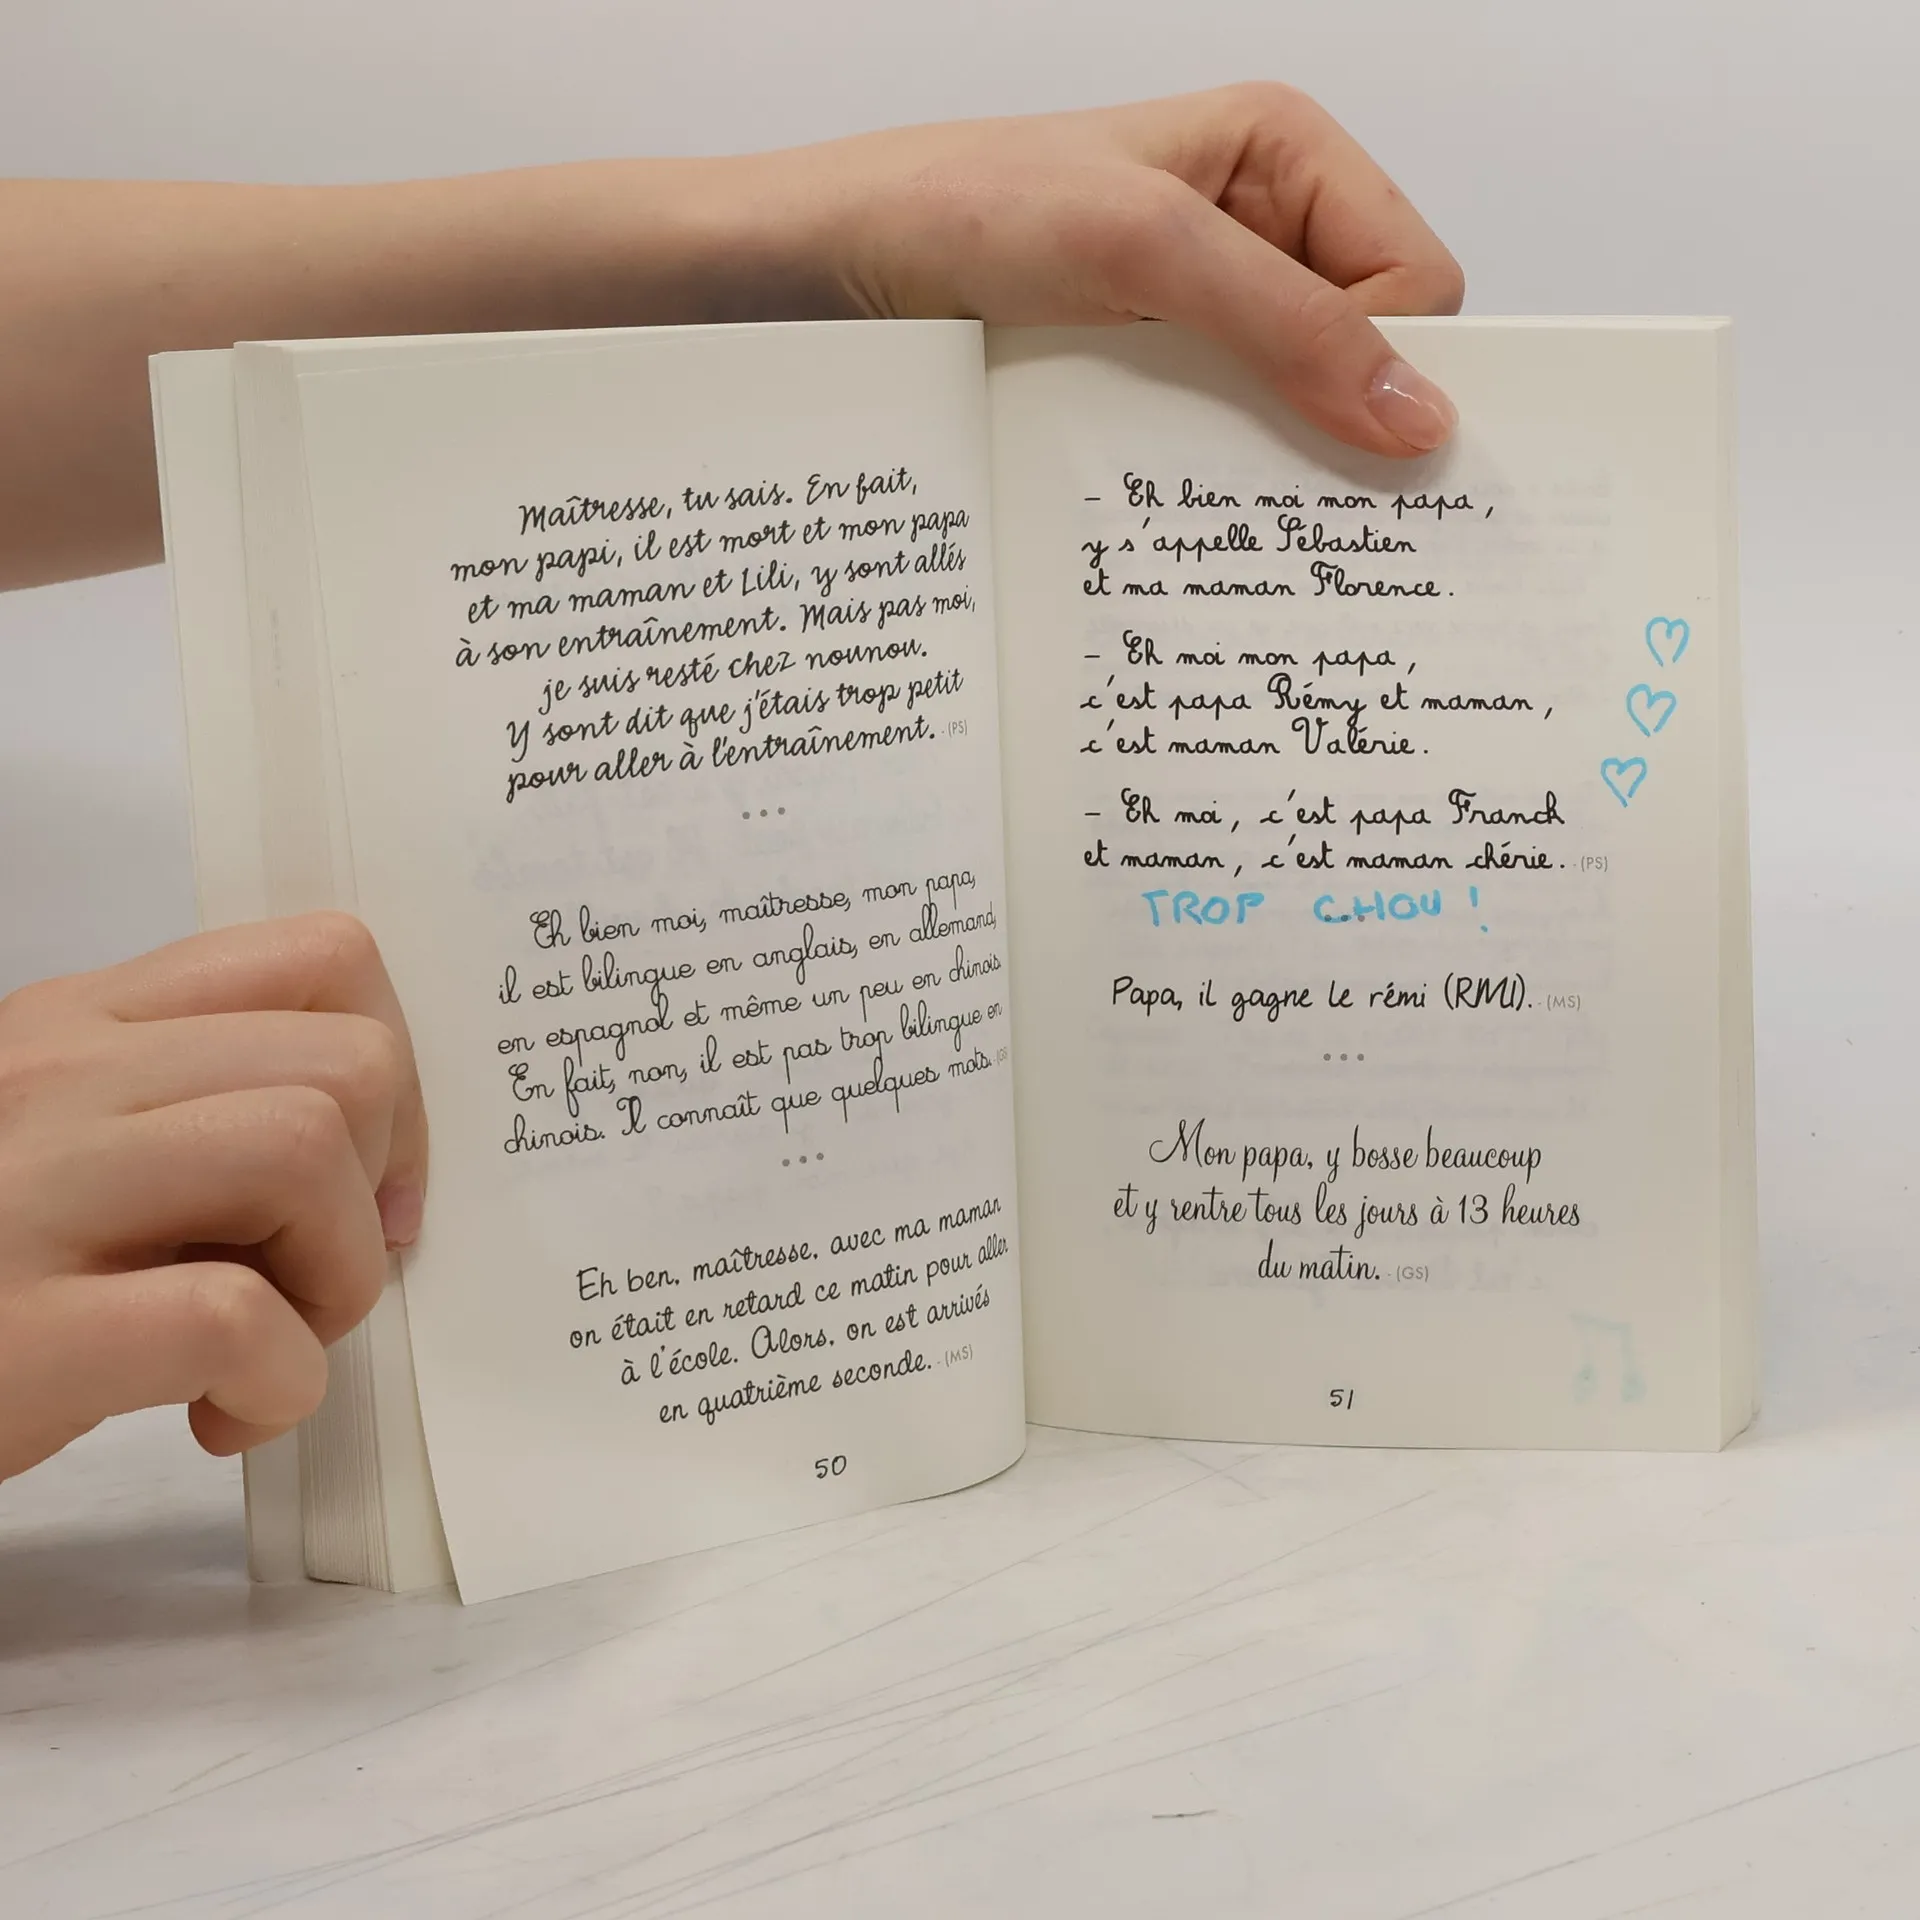 Maîtresse, tu sais. En fait,
mon papi, il est mort et mon papa
et ma maman et Lili, y sont allés
à son entraînement. Mais pas moi,
je suis resté chez nounou.
Y sont dit que j'étais trop petit
pour aller à l'entraînement. - (PS)
...
Eh bien moi, maîtresse, mon papa,
il est bilingue en anglais, en allemand,
en espagnol et même un peu en chinois.
En fait, non, il est pas trop bilingue en
chinois. Il connaît que quelques mots. - (GS)
...
Eh ben, maîtresse, avec ma maman
on était en retard ce matin pour aller
à l'école. Alors, on est arrivés
en quatrième seconde. - (MS)
50
– Eh bien moi mon papa,
y s'appelle Sébastien
et ma maman Florence.
– Eh moi mon papa,
c'est papa Rémy et maman,
c'est maman Valérie.
– Eh moi, c'est papa Franck
et maman, c'est maman chérie. - (PS)
TROP CHOU !
...
Papa, il gagne le rémi (RMI). - (MS)
...
Mon papa, y bosse beaucoup
et y rentre tous les jours à 13 heures
du matin. - (GS)
51